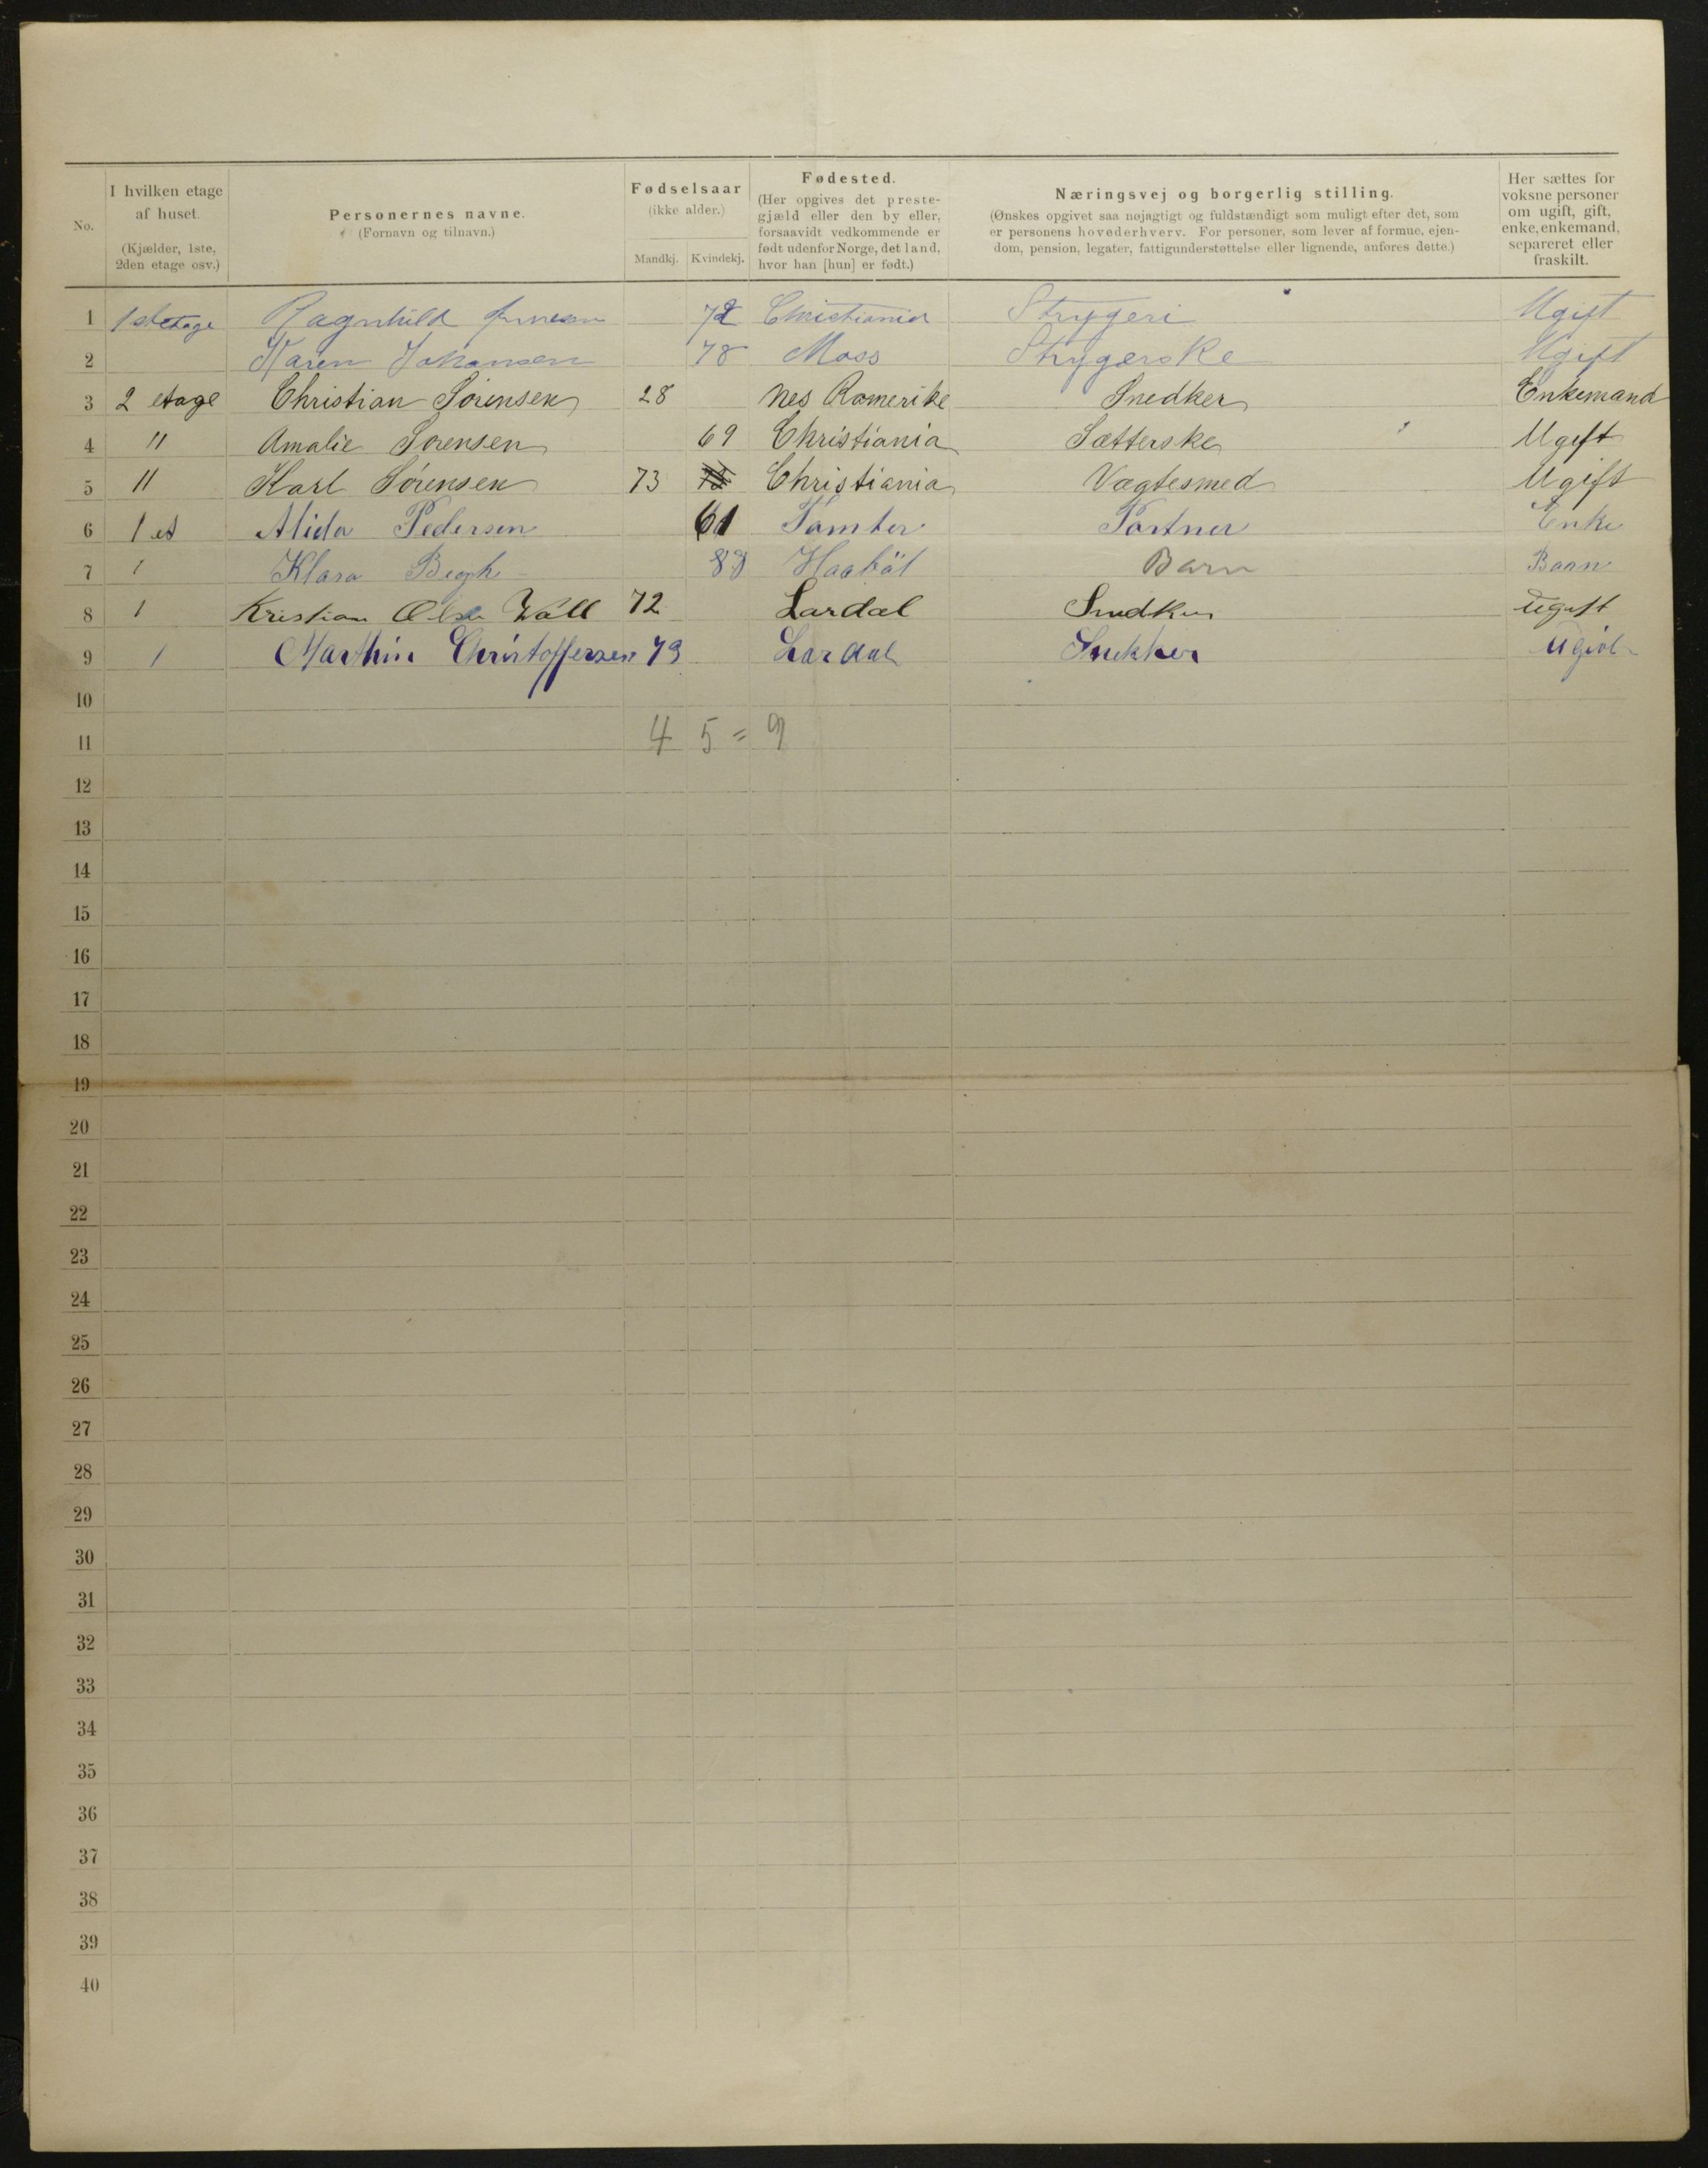 No.
I hvilken etage af huset.
(Kjælder, 1ste, 2den etage osv.)
Personernes navne.
(Fornavn og tilnavn.)
Fødselsaar
(ikke alder.)
Mandkj. Kvindekj.
Fødested.
(Her opgives det preste-
gjæld eller den by eller,
forsaavidt vedkommende er
født udenfor Norge, det land,
hvor han [hun] er født.)
Næringsvej og borgerlig stilling.
(Ønskes opgivet saa nøjagtigt og fuldstændigt som muligt efter det, som
er personens hovederhverv. For personer, som lever af formue, ejen-
dom, pension, legater, fattigunderstøttelse eller lignende, anføres dette.)
Her sættes for
voksne personer
om ugift, gift,
enke, enkemand,
separeret eller
fraskilt.
1 1steetage Ragnhild 72 Christiania Strygeri Ugift
2 Karen Johansen 78 Moss Strygerske Ugift
3 2 etage Christian Sørensen 28 Nes Romerike Snedker Enkemand
4 " Amalie Sørensen 69 Christiania Sætterske Ugift
5 " Karl Sørensen 73 Christiania Vægtesmed Ugift
6 1 et Alida Pedersen 61 Tomter Portner Enke
7 1 Klara Haabøl Barn Barn
8 1 Kristian Olsen Wall 72 Lardal Snedker Ugift
9 1 Marthin Christoffersen 73 Lardal Snekker Ugivt
10
11 4 5 = 9
12
13
14
15
16
17
18
19
20
21
22
23
24
25
26
27
28
29
30
31
32
33
34
35
36
37
38
39
40